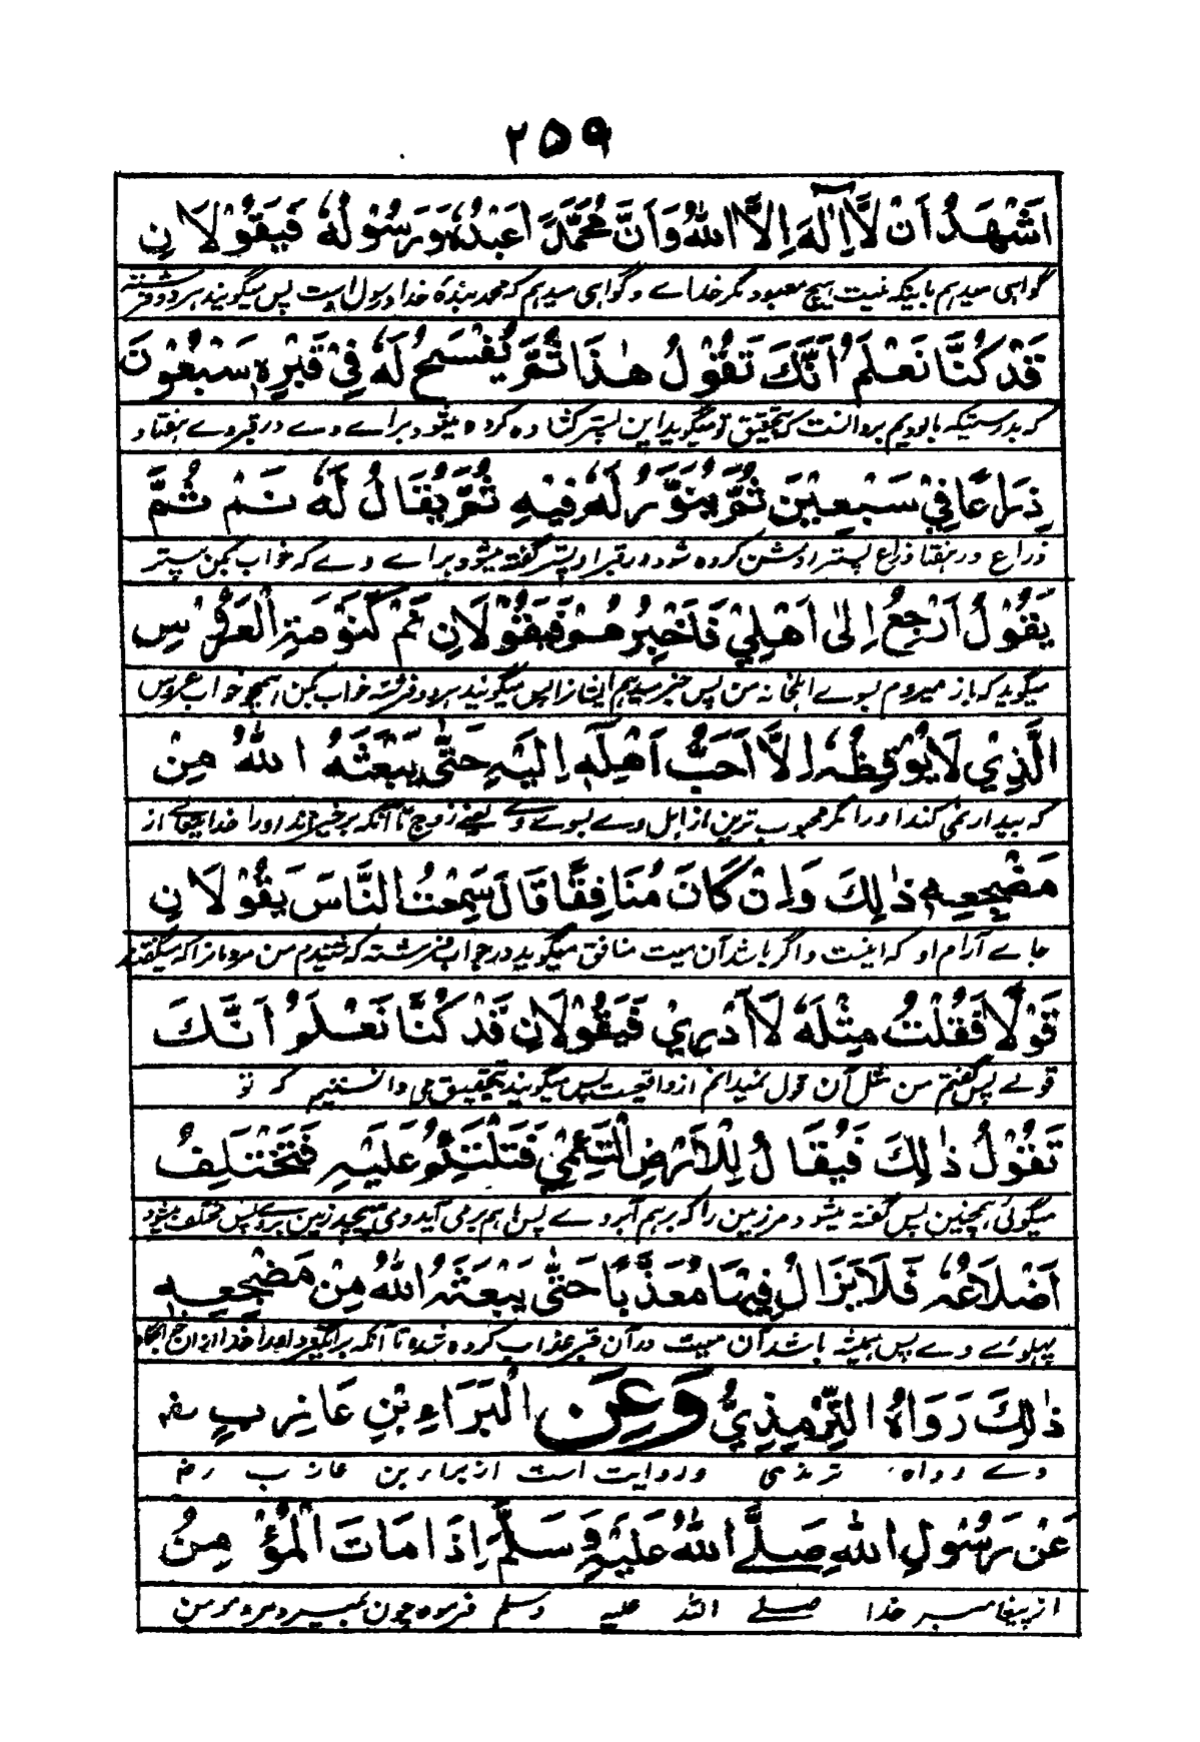 ۲۵۹
اَشْهَدُ اَنْ لَّا اِلٰهَ اِلَّا اللّٰهُ وَاَنَّ مُحَمَّدًا عَبْدُهٗ وَرَسُوْلُهٗ فَيَقُوْلَانِ
گواهی میدهم باینکه نیست هیچ معبود مگر خداے و گواهی میدهم که محمد بندهٔ خدا و رسول است پس میگویند هر دو فرشته
قَدْ كُنَّا نَعْلَمُ اَنَّكَ تَقُوْلُ هٰذَا ثُمَّ يُفْسَحُ لَهٗ فِيْ قَبْرِهٖ سَبْعُوْنَ
که بدرستیکه ما بودیم بدانست که تحقیق تو میگوید این پستر کشاده کرده میشود براے وے در قبر وے هفتاد
ذِرَاعًا فِيْ سَبْعِيْنَ ثُمَّ يُنَوَّرُ لَهٗ فِيْهِ ثُمَّ يُقَالُ لَهٗ نَمْ ثُمَّ
ذراع در هفتا ذراع پستر روشن کرده شود در قبر او پستر گفته میشود براے وے که خواب کبن پستر
يَقُوْلُ اَرْجِعُ اِلٰى اَهْلِيْ فَاُخْبِرُ هُمْ فَيَقُوْلَانِ نَمْ كَنَوْمَةِ الْعَرُوْسِ
میگوید که باز میروم بسوے اهلخانه من پس خبر میدهم ایشانرا پس میگویند هر دو فرشته خواب کبن همچو خواب عروس
الَّذِيْ لَا يُوْقِظُهٗ اِلَّا اَحَبُّ اَهْلِهٖ اِلَيْهِ حَتّٰى يَبْعَثَهُ اللّٰهُ مِنْ
که بیدار نمی کند او را مگر محبوب ترین از اهل وے بسوے وے یعنے زوج تا آنکه برخیزاند او را خدایتعالے از
مَضْجَعِهٖ ذٰلِكَ وَاِنْ كَانَ مُنَافِقًا قَالَ سَمِعْتُ النَّاسَ يَقُوْلَانِ
جاے آرام او که اینست و اگر باشد آن میت منافق میگوید در جواب فرشته که شنیدم من مردمانرا که میگفتند
قَوْلًا فَقُلْتُ مِثْلَهٗ لَا اَدْرِيْ فَيَقُوْلَانِ قَدْ كُنَّا نَعْلَمُ اَنَّكَ
قولے پس گفتم من مثل آن قول نمیدانم از واقعیت پس میگویند تحقیق می دانستیم که تو
تَقُوْلُ ذٰلِكَ فَيُقَالُ لِلْاَرْضِ الْتَئِمِيْ فَتَلْتَئِمُ عَلَيْهِ فَتَخْتَلِفُ
میگوئی همچنین پس گفته میشود مر زمین را که برهم آ بروے پس باهم بر می آید و می پیچد زمین بروے پس مختلف میشود
اَضْلَاعُهٗ فَلَا يَزَالُ فِيْهَا مُعَذَّبًا حَتّٰى يَبْعَثَهُ اللّٰهُ مِنْ مَضْجَعِهٖ
پهلوے وے پس همیشه باشد آن میت در آن قبر عذاب کرده شده تا آنکه برانگیزد او را خدا ازان
ذٰلِكَ رَوَاهُ التِّرْمِذِيُّ وَعَنِ الْبَرَاءِ بْنِ عَازِبٍ رض
وے رواه ترمذی و روایت است از براء بن عازب رض
عَنْ رَسُوْلِ اللّٰهِ صَلَّے اللّٰهُ عَلَيْهِ وَسَلَّمَ اِذَا مَاتَ الْمُؤْمِنُ
از پیغامبر خدا صلے الله علیه وسلم فرموده چون بمیرد مرد مومن